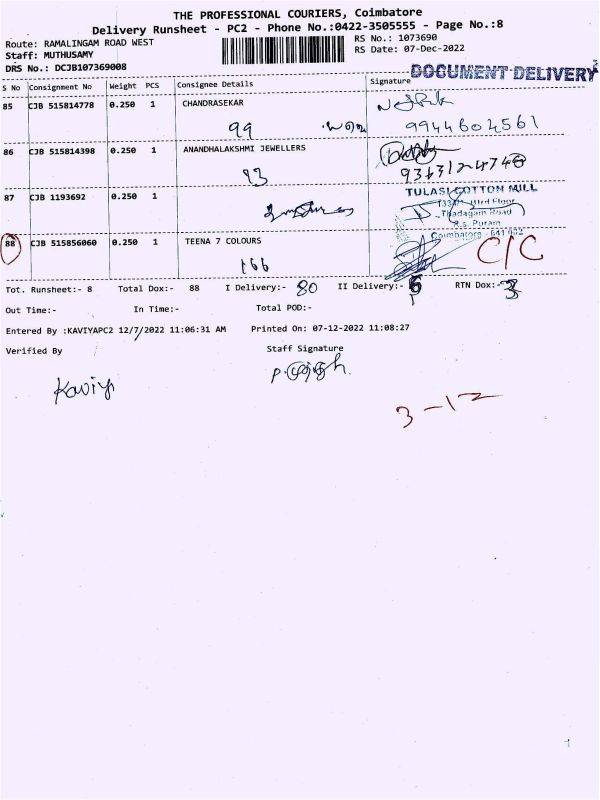 THE PROFESSIONAL COURIERS, Coimbatore
Delivery Runsheet - PC2 - Phone No.:0422-3505555 - Page No.:8
Route: RAMALINGAM ROAD WEST
RS No.: 1073690
Staff: MUTHUSAMY
RS Date: 07-Dec-2022
DRS No.: DCJB107369008
DOCUMENT DELIVERY
S No Consignment No Weight PCS Consignee Details Signature
85 CJB 515814778 0.250 1 CHANDRASEKAR
99 9944604561
86 CJB 515814398 0.250 1 ANANDHALAKSHMI JEWELLERS
93
87 CJB 1193692 0.250 1
TULASI COTTON MILL
IIIrd Floor
Thadagam Road
R.S. Puram
Coimbatore - 641 002
88 CJB 515856060 0.250 1 TEENA 7 COLOURS
166 C/C
Tot. Runsheet:- 8 Total Dox:- 88 I Delivery:- 80 II Delivery:- RTN Dox:- 3
Out Time:- In Time:- Total POD:-
Entered By :KAVIYAPC2 12/7/2022 11:06:31 AM Printed On: 07-12-2022 11:08:27
Verified By Staff Signature
Kaviya
3-12